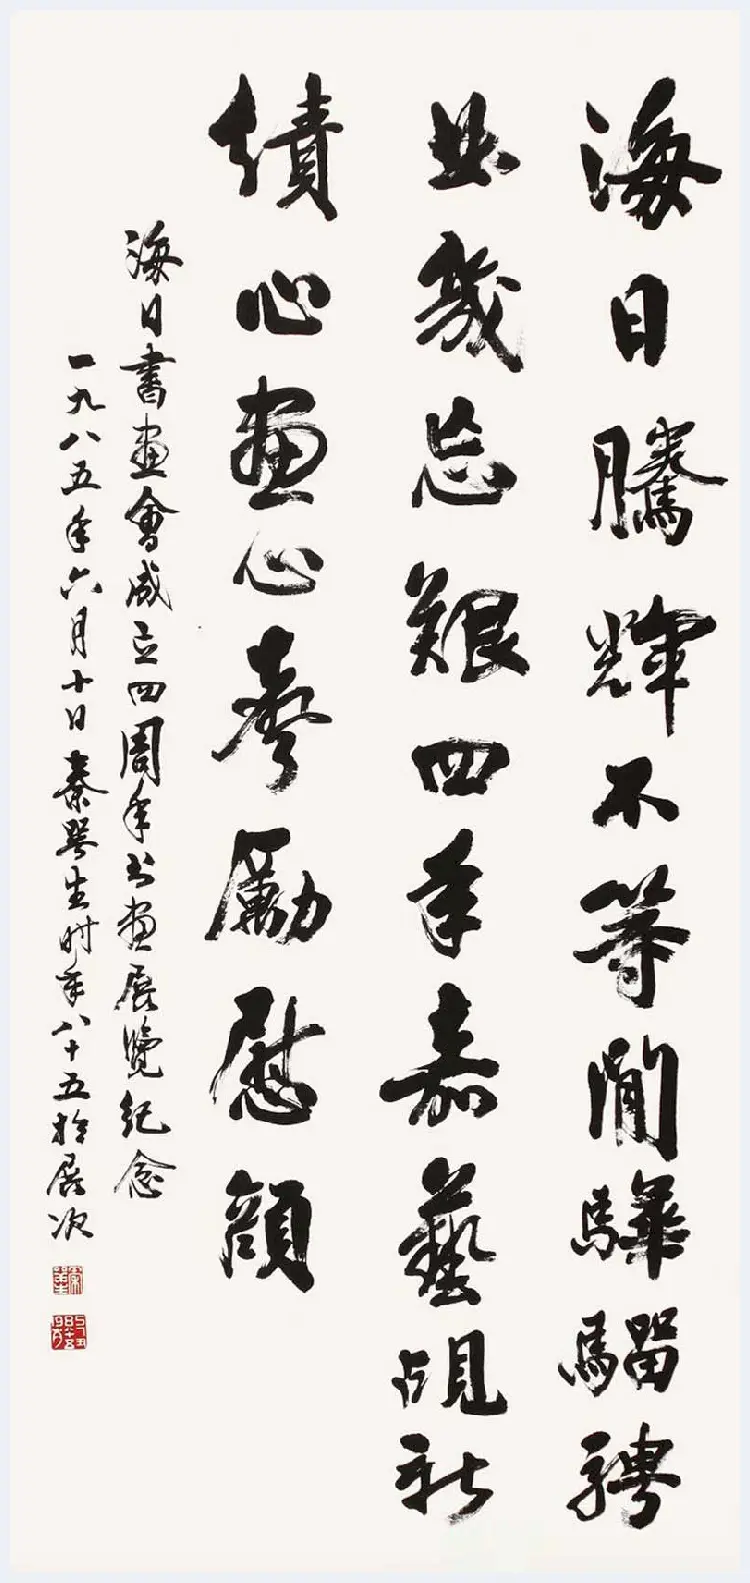 海日騰輝不等閒驊騮騁
幾忘艱四年嘉藝覘新
績心畫心聲勵慰顏
海日書畫會成立四周年书畫展覽紀念
一九八五年六月十日秦咢生时年八十五於展次